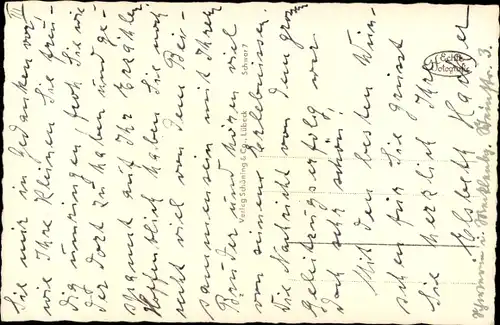 III
Sie mir in Gedanken vor,
wie Ihre Kleinen Sie freu-
dig umringen, froh Sie wie-
der dort zu haben und ge-
spannt auf Ihr Erzählen.
Hoffentlich haben Sie noch
recht viel von dem Bei-
sammensein mit Ihrem
Bruder und hören viel
von seinen Erlebnissen.
Die Nachricht von dem
Geleitzugserfolg war
doch sehr schön!
Mit den besten Wün-
schen für Sie grüsst
Sie herzlich Ihre
Elsbeth
Schwerin i. Mecklenbg.
Verlag Schöning & Co., Lübeck
Schwer 7
Echte
Fotografie